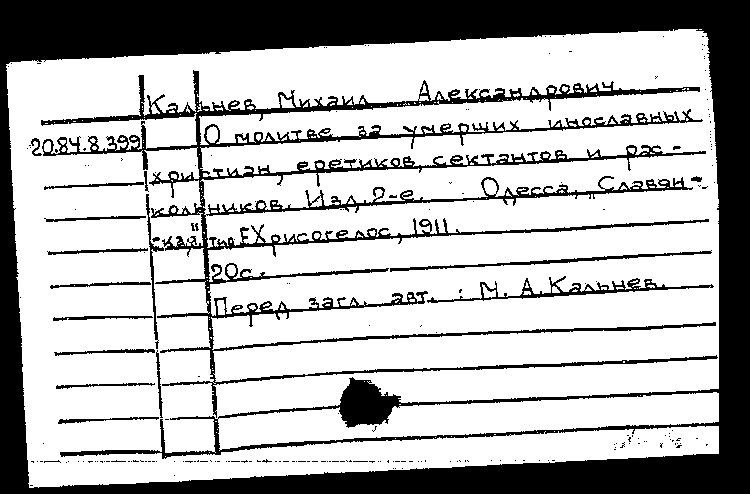 Кальнев, Михаил Александрович.
20.84.8.399 О молитве за умерших инославных
христиан, еретиков, сектантов и рас-
кольников. Изд. 2-е. Одесса, "Славян-
ская" тип. Е Хрисогелос, 1911.
20с.
Перед загл. авт. : М. А. Кальнев.